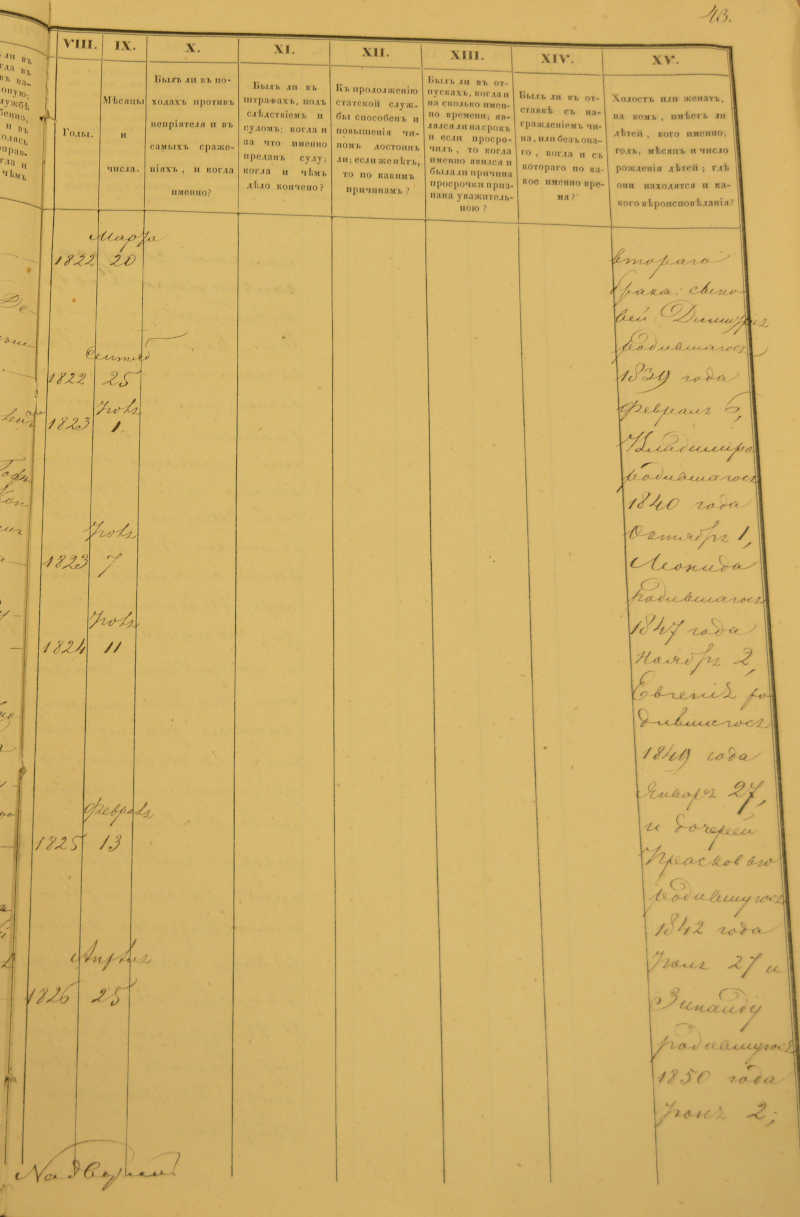 43.
VIII.
IX.
X.
XI.
XII.
XIII.
XIV.
XV.
Годы.
Мѣсяцы
и
числа.
Былъ ли въ по-
ходахъ противъ
непріятеля и въ
самыхъ сраже-
ніяхъ, и когда
именно?
Былъ ли въ
штрафахъ, подъ
слѣдствіемъ и
судомъ; когда и
за что именно
преданъ суду;
когда и чѣмъ
дѣло кончено?
Къ продолженію
статской служ-
бы способенъ и
повышенія чи-
номъ достоинъ
ли; если же нѣтъ,
то по какимъ
причинамъ?
Былъ ли въ от-
пускахъ, когда и
на сколько имен-
но времени; яв-
лялся ли на срокъ
и если просро-
чилъ, то когда
именно явился и
была ли причина
просрочки приз-
нана уважитель-
ною?
Былъ ли въ от-
ставкѣ съ на-
гражденіемъ чи-
на, или безъ она-
го, когда и съ
котораго по ка-
кое именно вре-
мя?
Холостъ или женатъ,
на комъ, имѣетъ ли
дѣтей, кого именно;
годъ, мѣсяцъ и число
рожденія дѣтей; гдѣ
они находятся и ка-
кого вѣроисповѣданія?
Марта
1822 20
1822 25
1823 1.
1823 7
1824 11
Февраля
1825 13
Апрѣля
1826 25
втораго
брака: сыно-
вей: Димитрія
родившагося
1839 года
Февраля 6,
Владиміра
родившагося
1840 года
Октября 1,
Леонида
родившагося
1847 года
Ноября 2,
Евгенія ро-
дившагося
1849 года
Января 27,
и дочерей
Прасковью
родившуюся
1842 года
27 и
Зинаиду
родившуюся
1850 года
2;